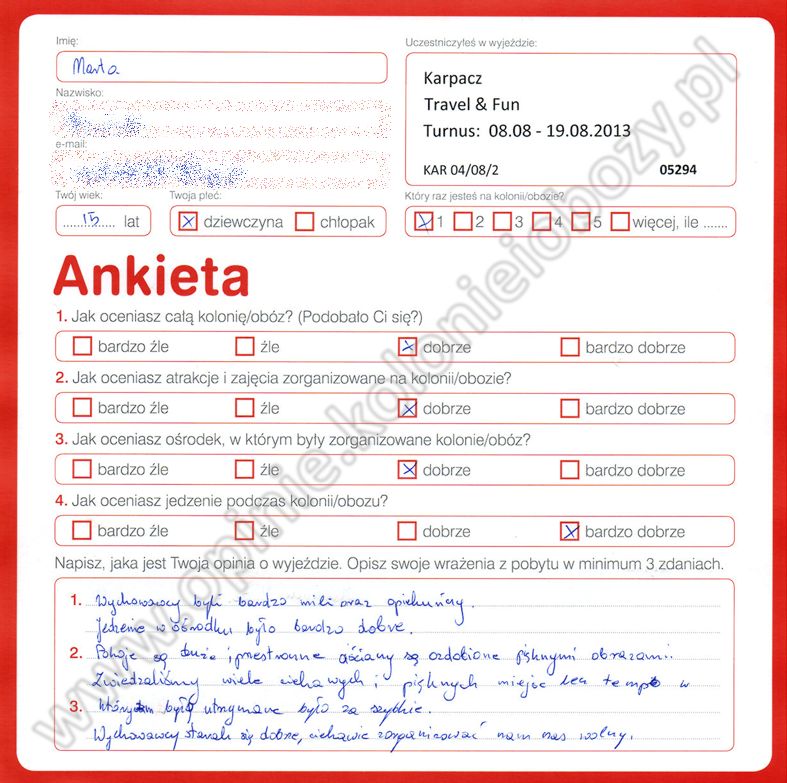 Imię:
Marta
Uczestniczyłeś w wyjeździe:
Karpacz
Travel & Fun
Turnus: 08.08 - 19.08.2013
KAR 04/08/2 05294
Nazwisko:
e-mail:
Twój wiek:
15 lat
Twoja płeć:
dziewczyna chłopak
Który raz jesteś na kolonii/obozie?
1 2 3 4 5 więcej, ile .......
Ankieta
1. Jak oceniasz całą kolonię/obóz? (Podobało Ci się?)
bardzo źle źle dobrze bardzo dobrze
2. Jak oceniasz atrakcje i zajęcia zorganizowane na kolonii/obozie?
bardzo źle źle dobrze bardzo dobrze
3. Jak oceniasz ośrodek, w którym były zorganizowane kolonie/obóz?
bardzo źle źle dobrze bardzo dobrze
4. Jak oceniasz jedzenie podczas kolonii/obozu?
bardzo źle źle dobrze bardzo dobrze
Napisz, jaka jest Twoja opinia o wyjeździe. Opisz swoje wrażenia z pobytu w minimum 3 zdaniach.
1. Wychowawcy byli bardzo mili oraz opiekuńczy.
Jedzenie w ośrodku było bardzo dobre.
2. Pokoje są duże i przestronne a ściany są ozdobione pięknymi obrazami.
Zwiedzaliśmy wiele ciekawych i pięknych miejsc lecz tempo w
3. którym były utrzymane było za szybkie.
Wychowawcy starali się dobrze, ciekawie zorganizować nam czas wolny.
www.opinie.kolonieiobozy.pl